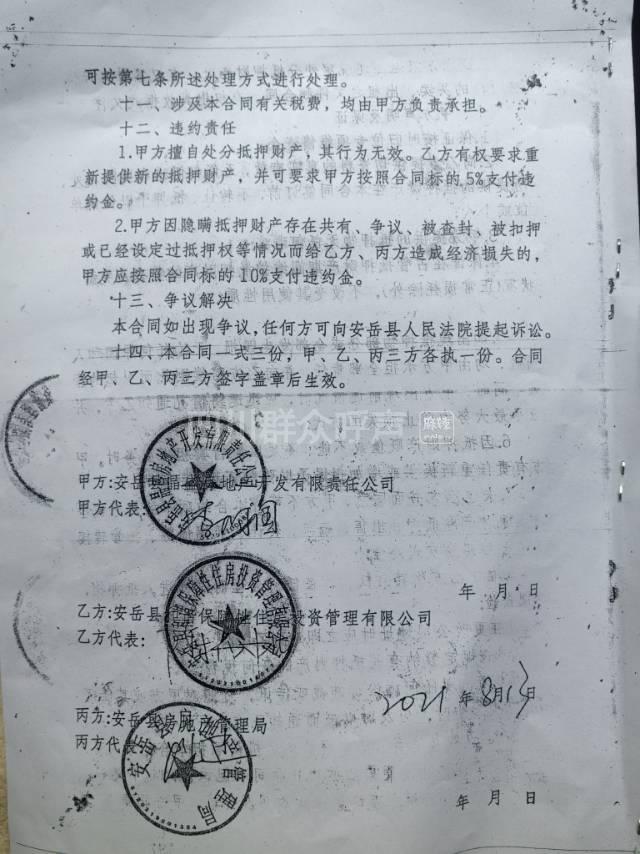 可按第七条所述处理方式进行处理。
十一、涉及本合同有关税费，均由甲方负责承担。
十二、违约责任
1.甲方擅自处分抵押财产，其行为无效。乙方有权要求重
新提供新的抵押财产，并可要求甲方按照合同标的5%支付违
约金。
2.甲方因隐瞒抵押财产存在共有、争议、被查封、被扣押
或已经设定过抵押权等情况而给乙方、丙方造成经济损失的，
甲方应按照合同标的10%支付违约金。
十三、争议解决
本合同如出现争议，任何方可向安岳县人民法院提起诉讼。
十四、本合同一式三份，甲、乙、丙三方各执一份。合同
经甲、乙、丙三方签字盖章后生效。
四川群众呼声
麻辣
甲方:安岳县 房地产开发有限责任公司
甲方代表:
年 月 日
乙方:安岳县 保障性住房投资管理有限公司
乙方代表:
2021年8月13日
丙方:安岳县房地产管理局
丙方代表
年 月 日